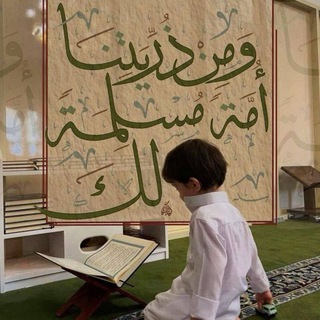 وَمِنْ ذُرِّيَّتِنَا
أُمَّةً مُسْلِمَةً
لَكَ